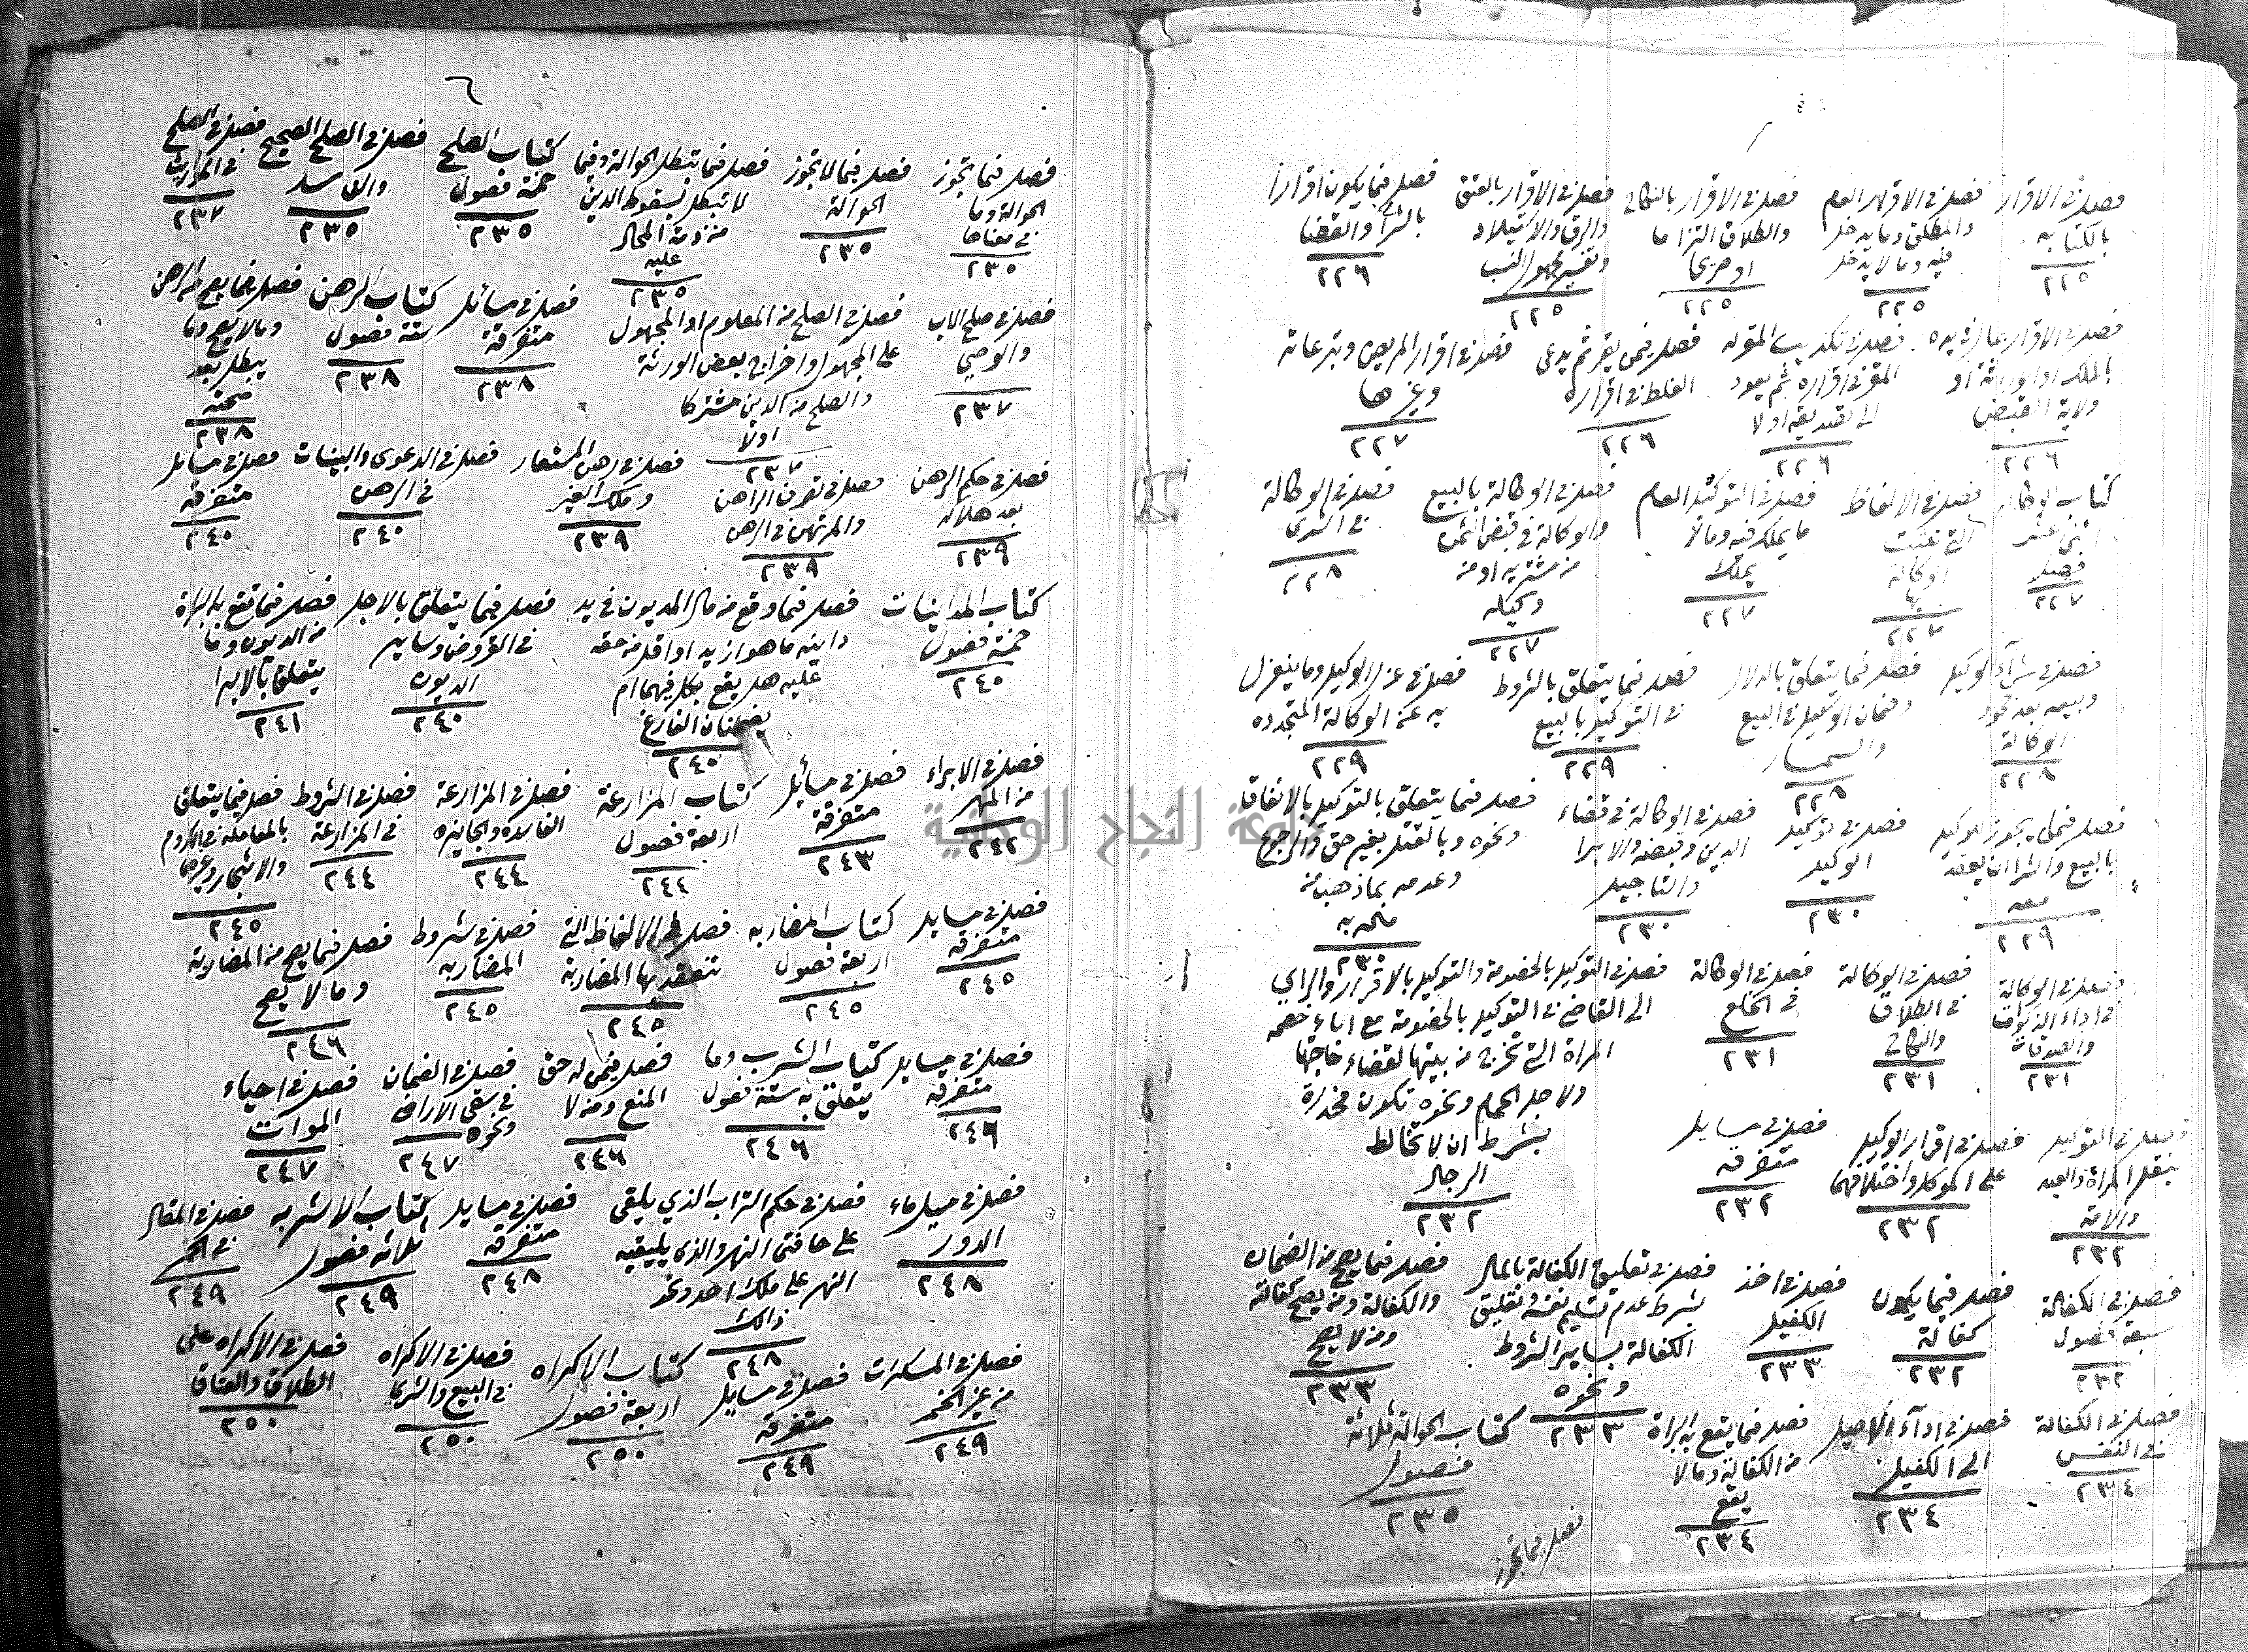 فصل في الاقرار بالكتابه ٢٢٥
فصل في الاقرار العام والمطلق وما يدخل فيه وما لا يدخل ٢٢٥
فصل في الاقرار بالنكاح والطلاق التزاما او صريحا ٢٢٥
فصل في الاقرار بالعتق والرق والاستيلاد وتفسير مجهول النسب ٢٢٥
فصل فيما يكون اقرارا بالشراء والقضا ٢٢٦
فصل في الاقرار بما في يده بالملك او الوراثة او ولاية القبض ٢٢٦
فصل في تكذيب المقر له المقر في اقراره ثم يعود الى تصديقه اولا ٢٢٦
فصل فيمن يقر ثم يدعى الغلط في اقراره ٢٢٦
فصل في اقرار المريض وتبرعاته وغيرها ٢٢٧
كتاب الوكاله اثنى عشر فصل ٢٢٧
فصل في الالفاظ التي تثبت الوكالة بها ٢٢٧
فصل في التوكيل العام ما يملك فيه وما لا يملك ٢٢٧
فصل في الوكالة بالبيع والوكالة في قبض الثمن من مشتريه او من وكيله ٢٢٧
فصل في الوكالة في الشرى ٢٢٨
فصل في شرآء الوكيل وبيعه بعد جحود الوكالة ٢٢٨
فصل فيما يتعلق بالدلال وضمان الوكيل في البيع والسمسار ٢٢٨
فصل فيما يتعلق بالشروط في التوكيل بالبيع ٢٢٩
فصل في عزل الوكيل وما ينعزل به عن الوكالة المتجدده ٢٢٩
فصل فيمن يجوز للوكيل بالبيع والشرا ان يعقد معه ٢٢٩
فصل في توكيل الوكيل ٢٣٠
فصل في الوكالة في قضاء الدين وقبضه والابرا والتاجيل ٢٣٠
فصل فيما يتعلق بالتوكيل بالانفاق ونحوه وبالقتل بغير حق والرجوع وعدمه بما ذهب من ماله به ٢٣٠
فصل في الوكالة في اداء الزكوات والصدقات ٢٣١
فصل في الوكالة في الطلاق والنكاح ٢٣١
فصل في الوكالة في الخلع ٢٣١
فصل في التوكيل بالخصومة والتوكيل بالاقرار والراي الى القاضي في التوكيل بالخصومة مع اباء خصمه المراة التي تخرج من بيتها لقضاء حاجتها ولاجل الحمام ونحوه تكون مخدرة بشرط ان لا تخالط الرجال ٢٣٢
فصل في التوكيل بنقل المراة والعبد والامة ٢٣٢
فصل في اقرار الوكيل على الموكل واختلافهما ٢٣٢
فصل في مسايل متفرقه ٢٣٢
فصل في الكفالة سبعة فصول ٢٣٢
فصل فيما يكون كفالة ٢٣٢
فصل في اخذ الكفيل ٢٣٣
فصل في تعليق الكفالة بالمال بشرط عدم تسليم نفسه وتعليق الكفالة بساير الشروط ونحوه ٢٣٣
فصل فيما يصح من الضمان والكفالة ومن يصح كفالته ومن لا يصح ٢٣٣
فصل في الكفالة في النفس ٢٣٤
فصل في ادآء الاصيل الى الكفيل ٢٣٤
فصل فيما يقع به البراة من الكفالة وما لا يقع ٢٣٤
كتاب الحوالة ثلاثة فصول ٢٣٥
فصل فيما تجوز
٦
فصل فيما تجوز الحوالة وما في معناها ٢٣٥
فصل فيما لا تجوز الحوالة ٢٣٥
فصل فيما تبطل الحوالة وفيما لا تبطل بسقوط الدين من ذمة المحال عليه ٢٣٥
كتاب الصلح خمسة فصول ٢٣٥
فصل في الصلح الصحيح والفاسد ٢٣٥
فصل في الصلح في المواريث ٢٣٧
فصل في صلح الاب والوصي ٢٣٧
فصل في الصلح من المعلوم او المجهول على المجهول واخراج بعض الورثة والصلح من الدين مشتركا اولا ٢٣٧
فصل في مسائل متفرقة ٢٣٨
كتاب الرهن ستة فصول ٢٣٨
فصل فيما يصح من الرهن وما لا يصح وما يبطل بعد صحته ٢٣٨
فصل في حكم الرهن بعد هلاكه ٢٣٩
فصل في تصرف الراهن والمرتهن في الرهن ٢٣٩
فصل في رهن المستعار وملك الغير ٢٣٩
فصل في الدعوى والبينات في الرهن ٢٤٠
فصل في مسايل متفرقه ٢٤٠
كتاب المداينات خمسة فصول ٢٤٠
فصل فيما وقع من مال المديون في يد داينه ما هو ازيد او اقل من حقه عليه هل يقع بكل فيهما ام يضمنان الفارغ ٢٤٠
فصل فيما يتعلق بالاجل في القروض وساير الديون ٢٤٠
فصل فيما تقع به البراة من الديون وما يتعلق بالابرا ٢٤١
فصل في الابراء من المهر ٢٤٢
فصل في مسائل متفرقة ٢٤٣
كتاب المزارعة اربعة فصول ٢٤٤
فصل في المزارعة الفاسده والجايزه ٢٤٤
فصل في الشروط في المزارعة ٢٤٤
فصل فيما يتعلق بالمعاملة في الكروم والاشجار وغيرها ٢٤٥
فصل في مسايل متفرقه ٢٤٥
كتاب المضاربه اربعة فصول ٢٤٥
فصل في الالفاظ التي تنعقد بها المضاربة ٢٤٥
فصل في شروط المضاربه ٢٤٥
فصل فيما يصح من المضاربة وما لا يصح ٢٤٦
فصل في مسايل متفرقه ٢٤٦
كتاب الشرب وما يتعلق به ستة فصول ٢٤٦
فصل فيمن له حق المنع ومن لا ٢٤٦
فصل في الضمان في سقي الاراضي ونحوه ٢٤٧
فصل في احياء الموات ٢٤٧
فصل في مسيل ماء الدور ٢٤٨
فصل في حكم التراب الذي يلقى على حافتى النهر والذي يلقيه النهر على ملك احد ونحو ذالك ٢٤٨
فصل في مسايل متفرقه ٢٤٨
كتاب الاشربه ثلاثه فصول ٢٤٩
فصل في المقال في الخمر ٢٤٩
فصل في المسكرات من غير الخمر ٢٤٩
فصل في مسايل متفرقة ٢٤٩
كتاب الاكراه اربعة فصول ٢٥٠
فصل في الاكراه في البيع والشرى ٢٥٠
فصل في الاكراه على الطلاق والعتاق ٢٥٠
جامعة النجاح الوطنية